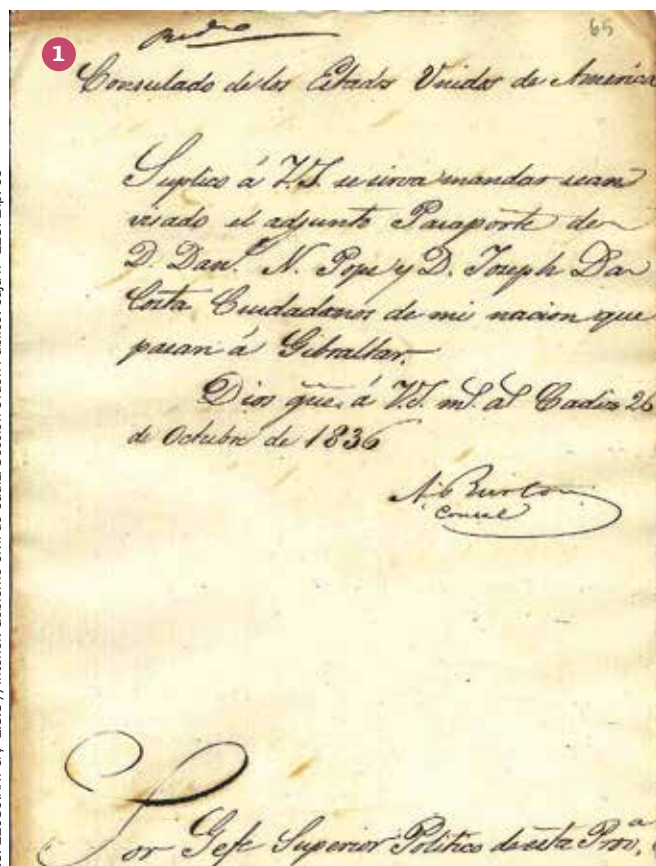 65
1
Consulado de los Estados Unidos de America
Suplico á V.S. se sirva mandar sean
visado el adjunto Pasaporte de
D. Dan.l N. Pope y D. Joseph Da
Costa Ciudadanos de mi nacion que
pasan á Gibraltar.
Dios gũe. á V.S. m.s a.s Cadiz 26
de Octubre de 1836
Burton
Consul
Sor Gefe Superior Politico de esta Prov.a